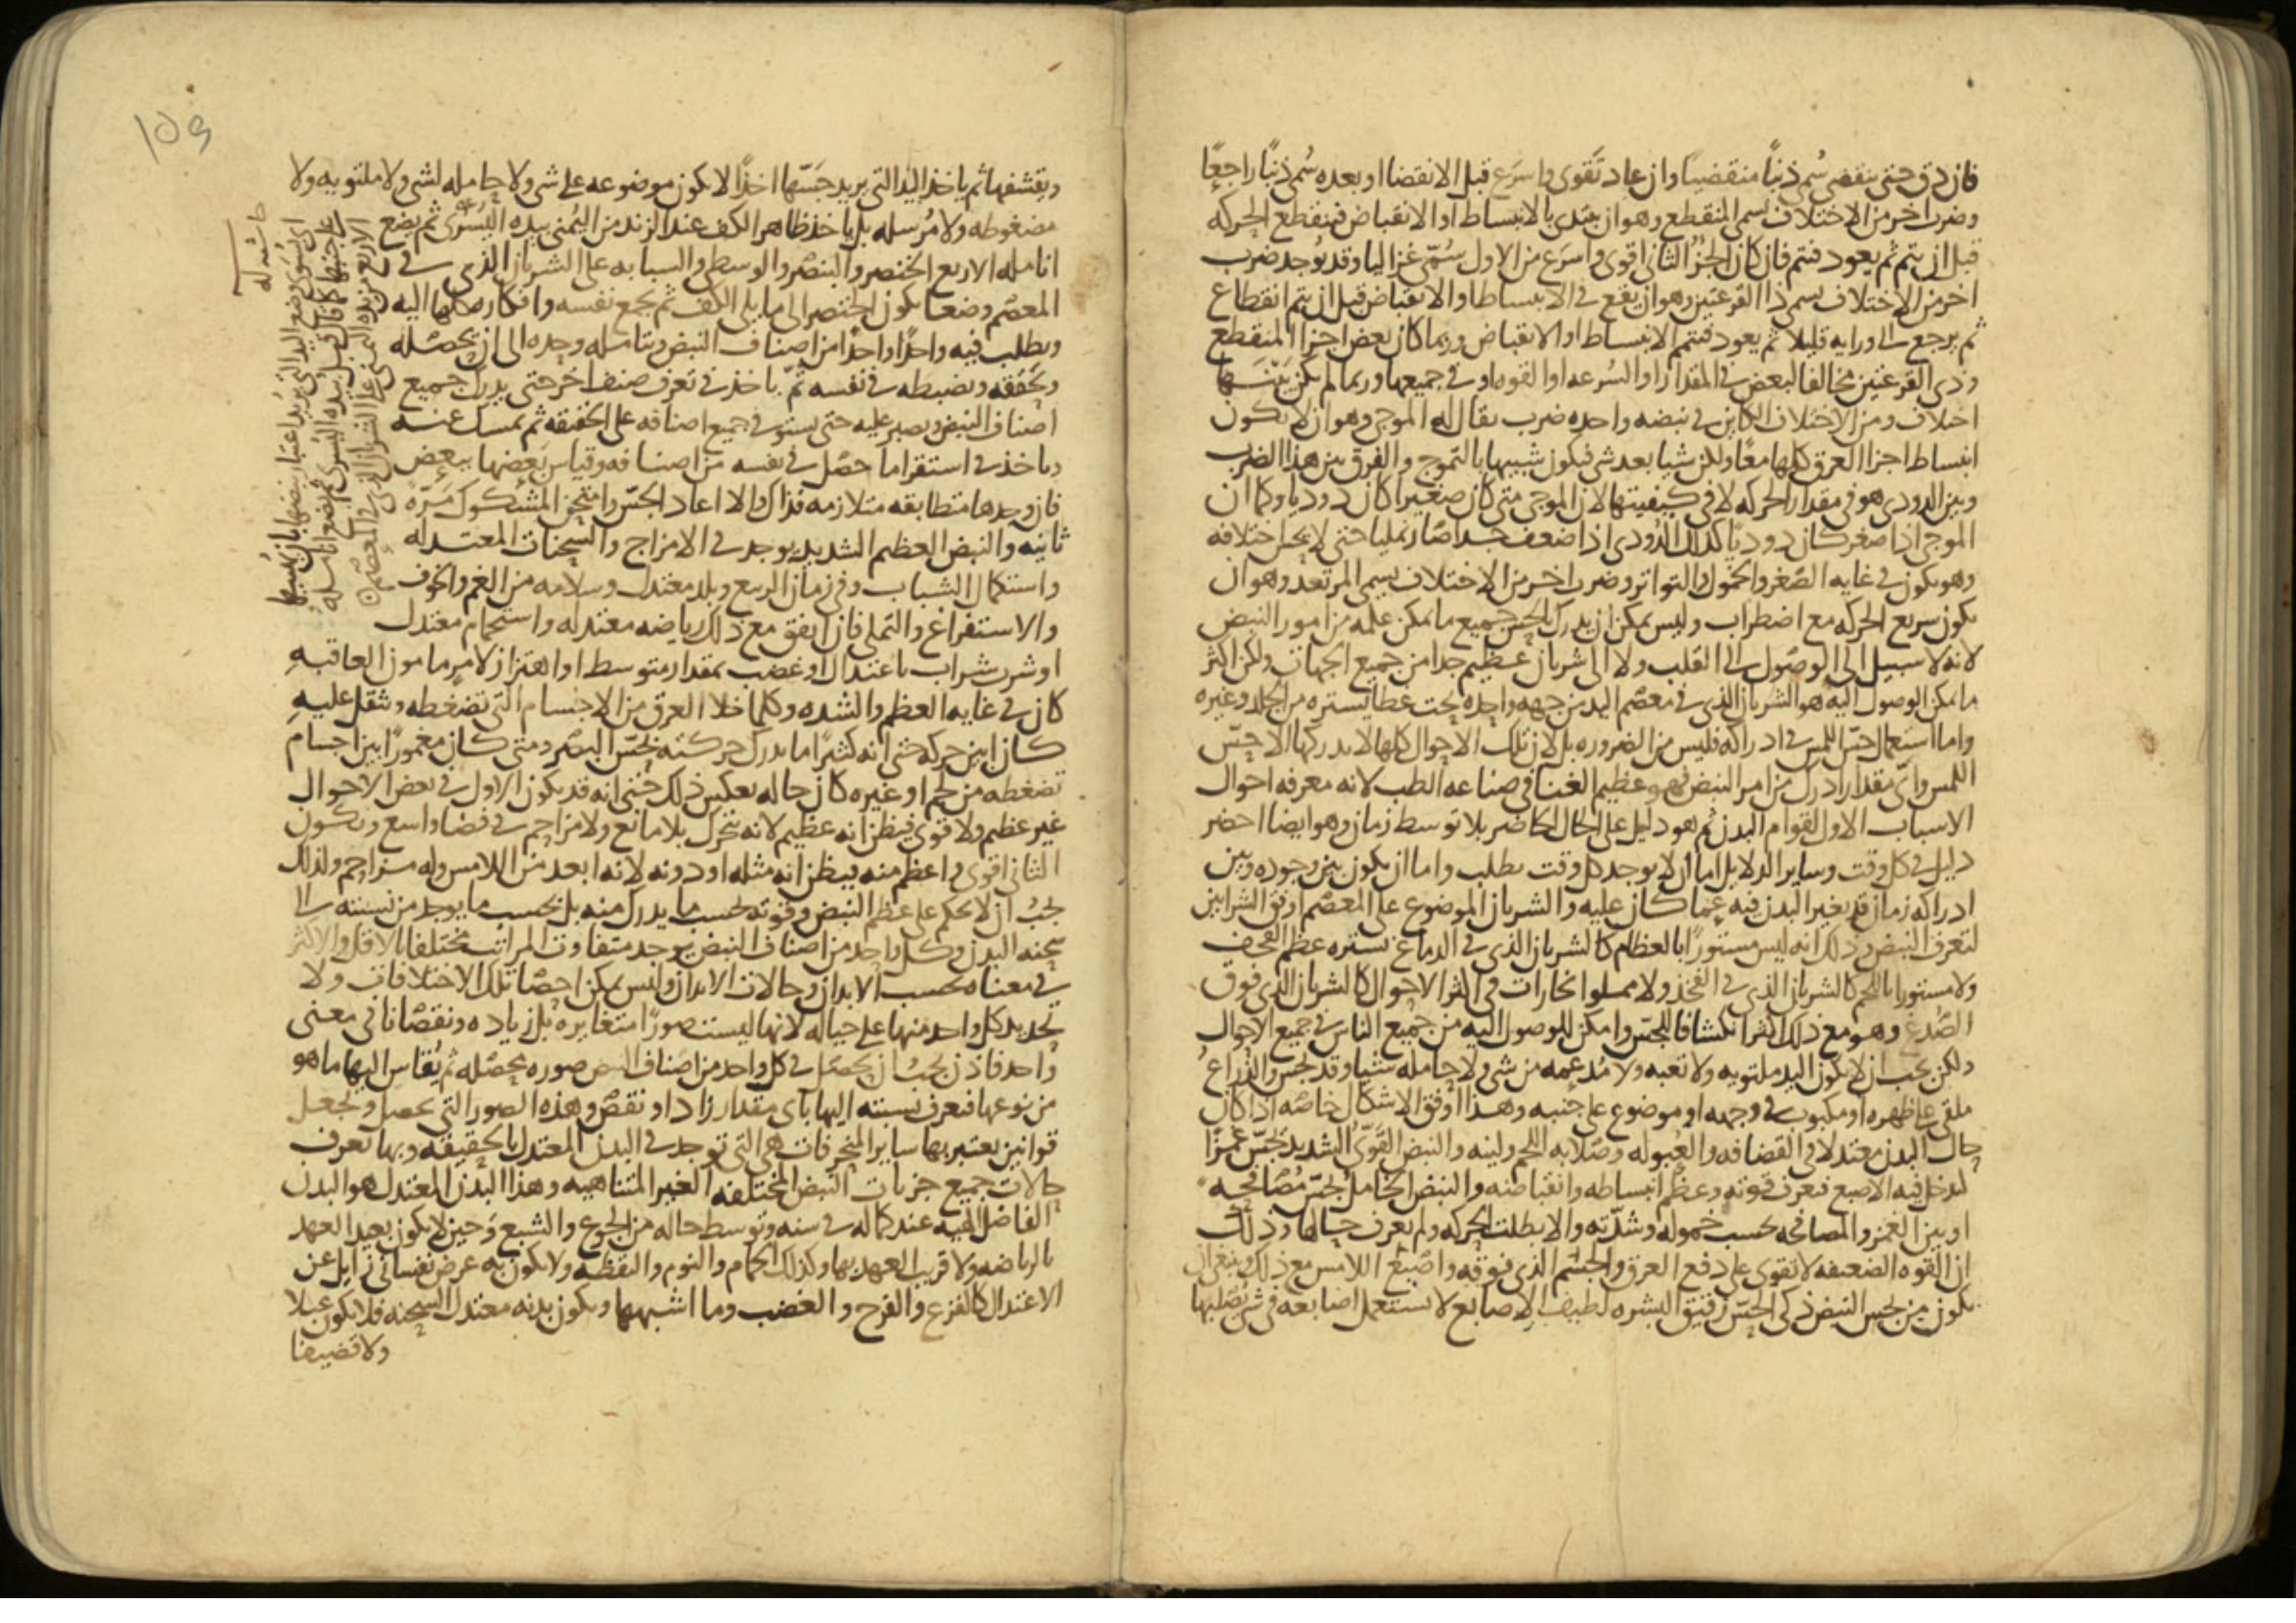 فان دق حتى ينقضى سُمى ذنباً منقضياً وان عاد تقوى واسرع قبل الانقضا او بعده سُمى ذنباً راجعًا
وضرب اخر من الاختلاف يسمى المنقطع وهو ان يبتدى بالانبساط او الانقباض فينقطع الحركه
قبل ان يتم ثم يعود فتتم فان كان الجزُ الثانى اقوى واسرَع من الاول سُمّى غزاليا وقد يُوجد ضرب
اخر من الاختلاف يسمى ذا القرعتين وهو ان يقع فى الانبساط او الانقباض قبل ان يتم انقطاع
ثم يرجع الى ورايه قليلا ثم يعود فتتم الانبساط او الانقباض وربما كان بعض اجزا المنقطع
وذى القرعتين مخالفا لبعض فى المقدار او السُرعه او القوه او فى جميعها وربما لم يكن بينها
اختلاف ومن الاختلاف الكاين فى نبضه واحده ضرب يقال له الموجى وهو ان لا يكون
انبساط اجزا العرق كلها معًا ولكن شيا بعد شى فيكون شبيها بالتموج والفرق بين هذا الضرب
وبين الدودى هو فى مقدار الحركه لا فى كيفيتها لان الموجى متى كان صغيرا كان دوديا وكما ان
الموجى اذا صغر كان دوديًا كذلك الدُودى اذا ضعف جدا صار نمليا حتى لا يحس اختلافه
وهو يكون فى غايه الصّغر والخمول والتواتر وضرب اخر من الاختلاف يسمى المرتعد وهو ان
يكون سريع الحركه مع اضطراب وليس يمكن ان يدرك بالحس جميع ما يمكن علمه من امور النبض
لانه لا سبيل الى الوصُول الى القلب ولا الى شريان عظيم جدا من جميع الجهات ولكن اكثر
ما يمكن الوصول اليه هو الشريان الذى فى معصم اليد من جهه واحده تحت غطا يستره من الجلد وغيره
واما استعمال حسّ اللمس فى ادراكه فليس من الضروره بل لان تلك الاحوال كلها لا يدركها الا حِسّ
اللمس واىّ مقدار ادرك من امر النبض فهو عظيم الغنا فى صناعه الطب لانه معرفه احوال
الاسباب الاول لقوام البدن ثم هو دليل على الحال الحاضر بلا توسط زمان وهو ايضا احضر
دليل فى كل وقت وساير الدلايل اما ان لا يوجد كل وقت يطلب واما ان يكون بين وجوده وبين
ادراكه زمان قد يغير البدن فيه عما كان عليه والشريان الموضوع على المعصم اوفق الشرايين
لتعرف النبض وذلك انه ليس مستورًا بالعظام كالشريان الذى فى الدماغ يستره عظم القحف
ولا مستورا باللحم كالشريان الذى فى الفخذ ولا مملوا بخارات فى اكثر الاحوال كالشريان الذى فوق
الصُدغ وهو مع ذلك اكثر انكشافا للحسّ وامكن للوصول اليه من جميع الناس فى جميع الاحوال
ولكن يجب ان لا يكون اليد ملتويه ولا تعبه ولا مُدعمه من شى ولا حامله شيا وقد يجس والذراعُ
ملقى على ظهره او مكبوب فى وجهه او موضوع على جنبه وهذا اوفق الاشكال خاصّه اذا كان
حال البدن معتدلا فى القضافه والعُبوله وصَلابه اللحم ولينه والنبض القَوىّ الشديد يُجسّ غمزًا
لتدخل فيه الاصبع فتعرف قوته وعظم انبساطه وانقباضه والنبض الخاملُ يُجسّ مُصَافحه
او بين الغمز والمصافحه بحسب خموله وشدّته والا بطلت الحركه ولم يعرف حالها وذلك
ان القوه الضعيفه لا تقوى على دفع العرق والجسم الذى فوقه واصبع اللامس مع ذلك وينبغى ان
يكون من يجس النبض ذكى الحسّ رقيق البشره لطيف الاصابع لا يستعمل اصابعه فى شى يصلبها
ويقشفها ثم ياخذ اليد التى يريد جَسّها اخذًا لا يكون موضوعه على شى ولا حامله لشى ولا ملتويه ولا
مضغوطه ولا مُرسله بل ياخذ ظاهر الكف عند الزند من اليُمنى بيده اليُسرى ثم يضع
انامله الاربع الخنصر والبنصر والوسطى والسبابه على الشريان الذى فى
المعصم وضعا يكون الخنصر الى ما يلى الكف ثم يجمع نفسه وافكاره كلها اليه
ويطلب فيه واحدًا واحدًا من اصناف النبض ويتامله وحده الى ان يحصّله
ويحققه ويضبطه فى نفسه ثمّ ياخذ فى تعرف صنف اخر حتى يدرك جميع
اصناف النبض ويصبر عليه حتى يستوفى جميع اصنافه على الحقيقه ثم يمسك عنه
وياخذ فى استقرا ما حصّل فى نفسه من اصنافه وقياس بَعضها ببعض
فان وجدها متطابقه متلازمه فذاك والا اعاد الجسّ وامتحن المشكوك مَرّهً
ثانيه والنبض العظيم الشديد يوجد فى الامزاج والسحنات المعتدله
واستكمال الشباب وفى زمان الربيع وبلد معتدل وسلامه من الغم والخوف
والاستفراغ والتملى فان اتفق مع ذلك رياضه معتدله واستحمام معتدل
او شرب شراب باعتدال او غضب بمقدار متوسط او اهتزاز لامرٍ مامون العاقبه
كان فى غايه العظم والشده وكلما خلا العرق من الاجسام التى تضغطه وتثقل عليه
كان ابين حركه حتى انه كثيرًا ما يدرك حركته بحسّ البصر ومتى كان مغمورًا بين اجسام
تضغطه من لحم او غيره كان حاله بعكس ذلك حتى انه قد يكون الاول فى بعض الاحوال
غير عظيم ولا قوى فيظن انه عظيم لانه يتحرك بلا مانع ولا مزاحم فى فضا واسع ويكون
الثانى اقوى واعظم منه فيظن انه مثله او دونه لانه ابعد من اللامس وله مزاحم ولذلك
يجبُ ان لا يحكم على عظم النبض وقوته بحسب ما يدرك منه بل بحسب ما يوجد من نسبته الى
سحنه البدن وكل واحد من اصناف النبض يوجد متفاوت المراتب مختلفا بالاقل والاكثر
فى معناه بحسب الابدان وحالات الابدان وليس يمكن احصَا تلك الاختلافات ولا
تحديد كل واحد منها على حياله لانها ليست صورًا متغايره بل زياده ونقصانا فى معنى
واحد فاذن يجبُ ان يحصل فى كل واحد من اصناف النبض صوره محصّله ثم يُقاس اليها ما هو
من نوعها فيعرف نسبته اليها بأى مقدار زاد او نقصَ وهذه الصور التى تحصل وتجعل
قوانين يعتبر بها ساير المنحرفات هى التى توجد فى البدن المعتدل بالحقيقه وبها تعرف
حالات جميع جزيات النبض المختلفه الغير المتناهيه وهذا البدن المعتدل هو البدن
الفاضل الهيه عند كماله فى سنه وتوسط حاله من الجوع والشبع وَحين لا يكون بعيد العهد
بالرياضه ولا قريب العهد بها وكذلك الحمام والنوم واليقظه ولا يكون به عرض نفسانى زايل عن
الاعتدال كالفزع والفرح والغضب وما اشبهها ويكون بدنه معتدل السحنه فلا يكون عبلا
ولا قضيفا
حاشيه له
اى يُسَوى وضع اليد التى يريد اعتبار نبضها بان يُنيمها
على جنبها كما قال قبل بيده اليُسرى ثم يضع انامله
الاربع من يده اليمنى على الشريان الذى فى المعصم